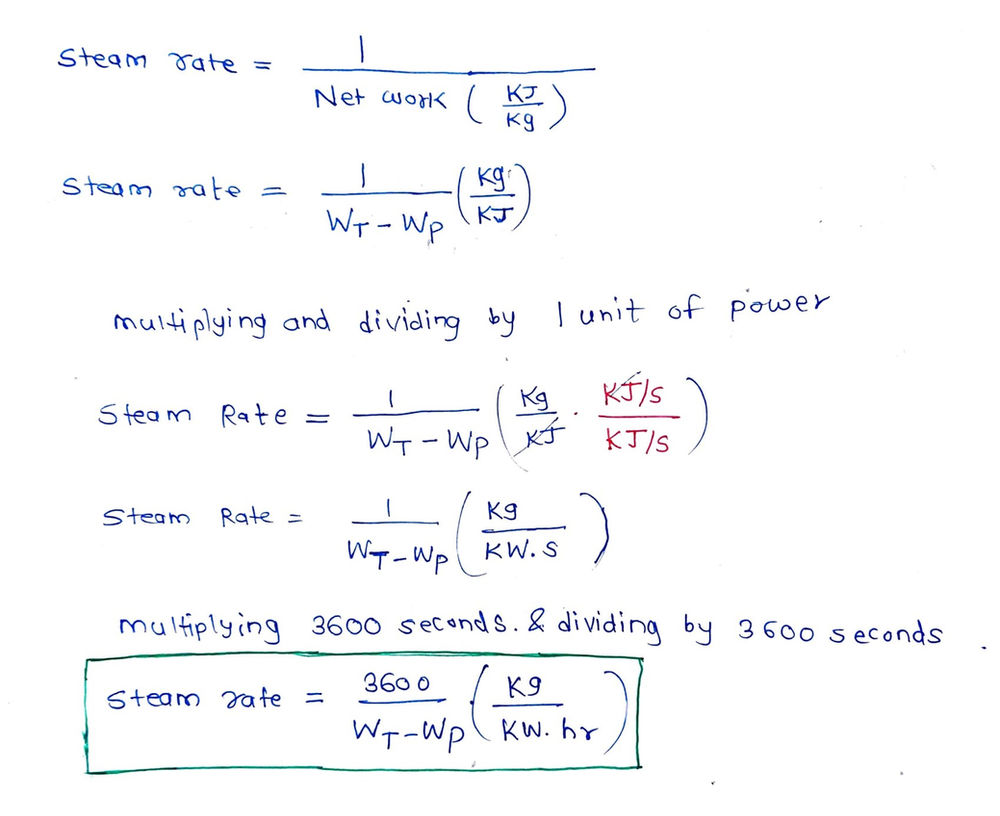 Steam rate = 1 / Net work (KJ/Kg)
Steam rate = 1 / W_T - W_P (Kg/KJ)
multiplying and dividing by 1 unit of power
Steam Rate = 1 / W_T - W_P (Kg/KJ . KJ/s / KJ/s)
Steam Rate = 1 / W_T - W_P (Kg / KW.S)
multiplying 3600 seconds. & dividing by 3600 seconds.
Steam rate = 3600 / W_T - W_P (Kg / KW.hr)